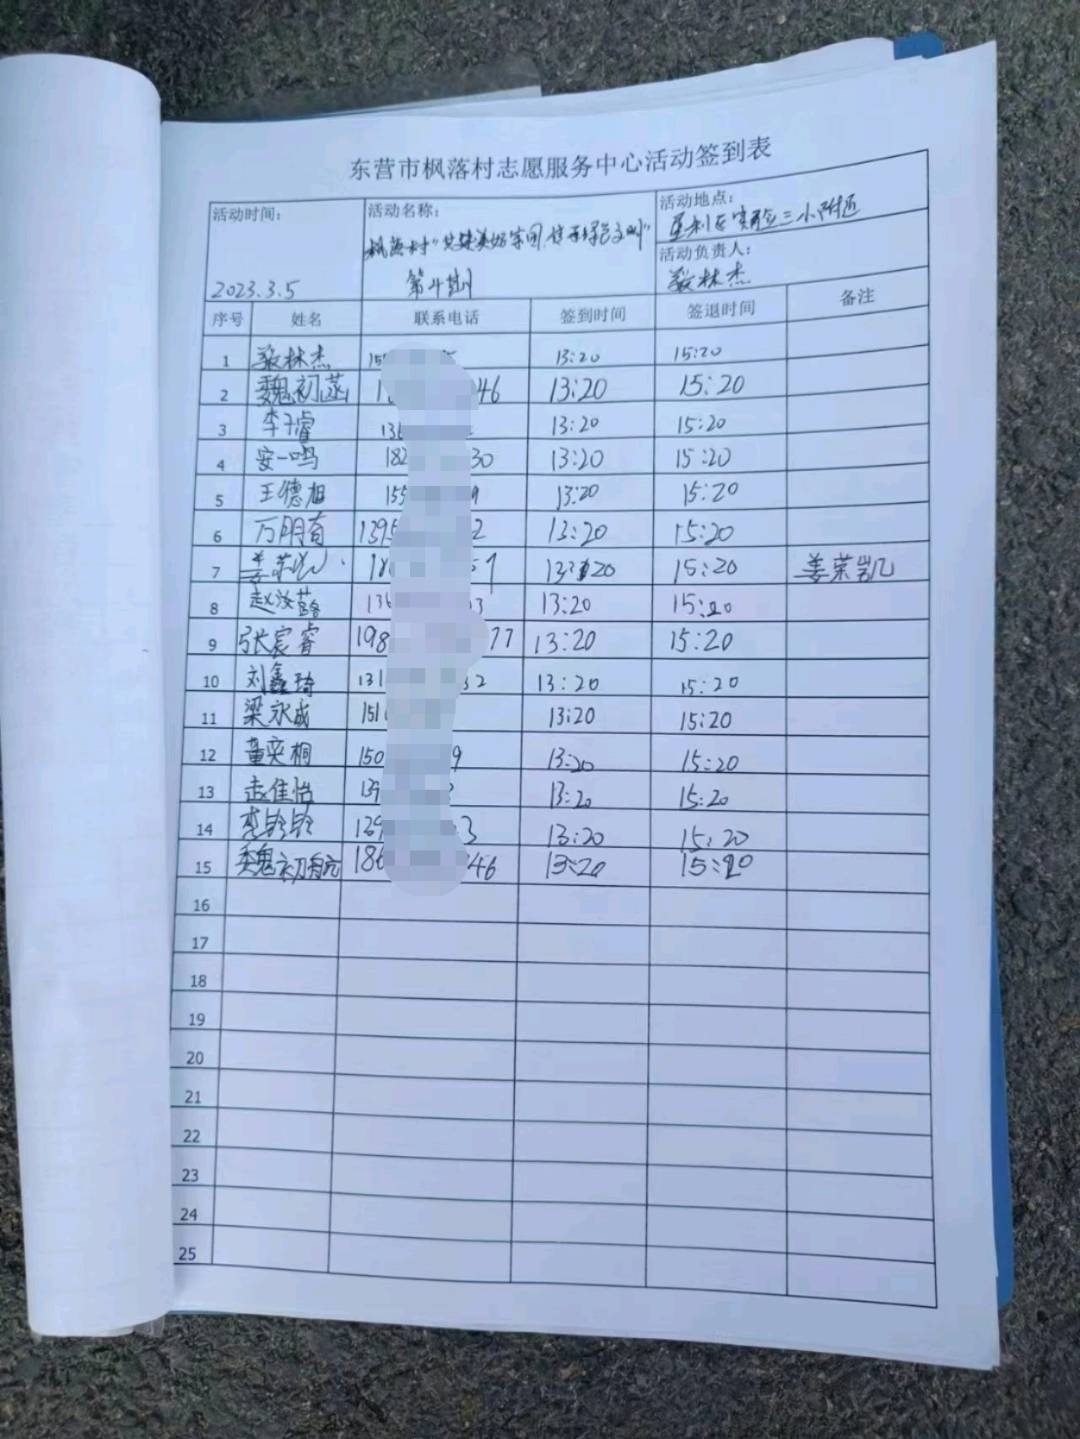 东营市枫落村志愿服务中心活动签到表
活动时间： 活动名称： 活动地点：
枫落村"共建美好家园, 垦利区实验三小附近
活动负责人：
2023.3.5 第4期 林杰
序号 姓名 联系电话 签到时间 签退时间 备注
1 林杰 15 13:20 15:20
2 魏初菡 1 46 13:20 15:20
3 李子睿 136 13:20 15:20
4 安一鸣 182 30 13:20 15:20
5 王德旭 155 9 13:20 15:20
6 万明 1395 2 13:20 15:20
7 姜荣凯 18 7 13:20 15:20 姜荣凯
8 赵汝 136 3 13:20 15:20
9 张宸睿 198 77 13:20 15:20
10 刘鑫琦 131 32 13:20 15:20
11 梁永成 151 13:20 15:20
12 董奕桐 150 9 13:20 15:20
13 赵佳怡 139 13:20 15:20
14 李玲玲 139 3 13:20 15:20
15 魏初 186 46 13:20 15:20
16
17
18
19
20
21
22
23
24
25